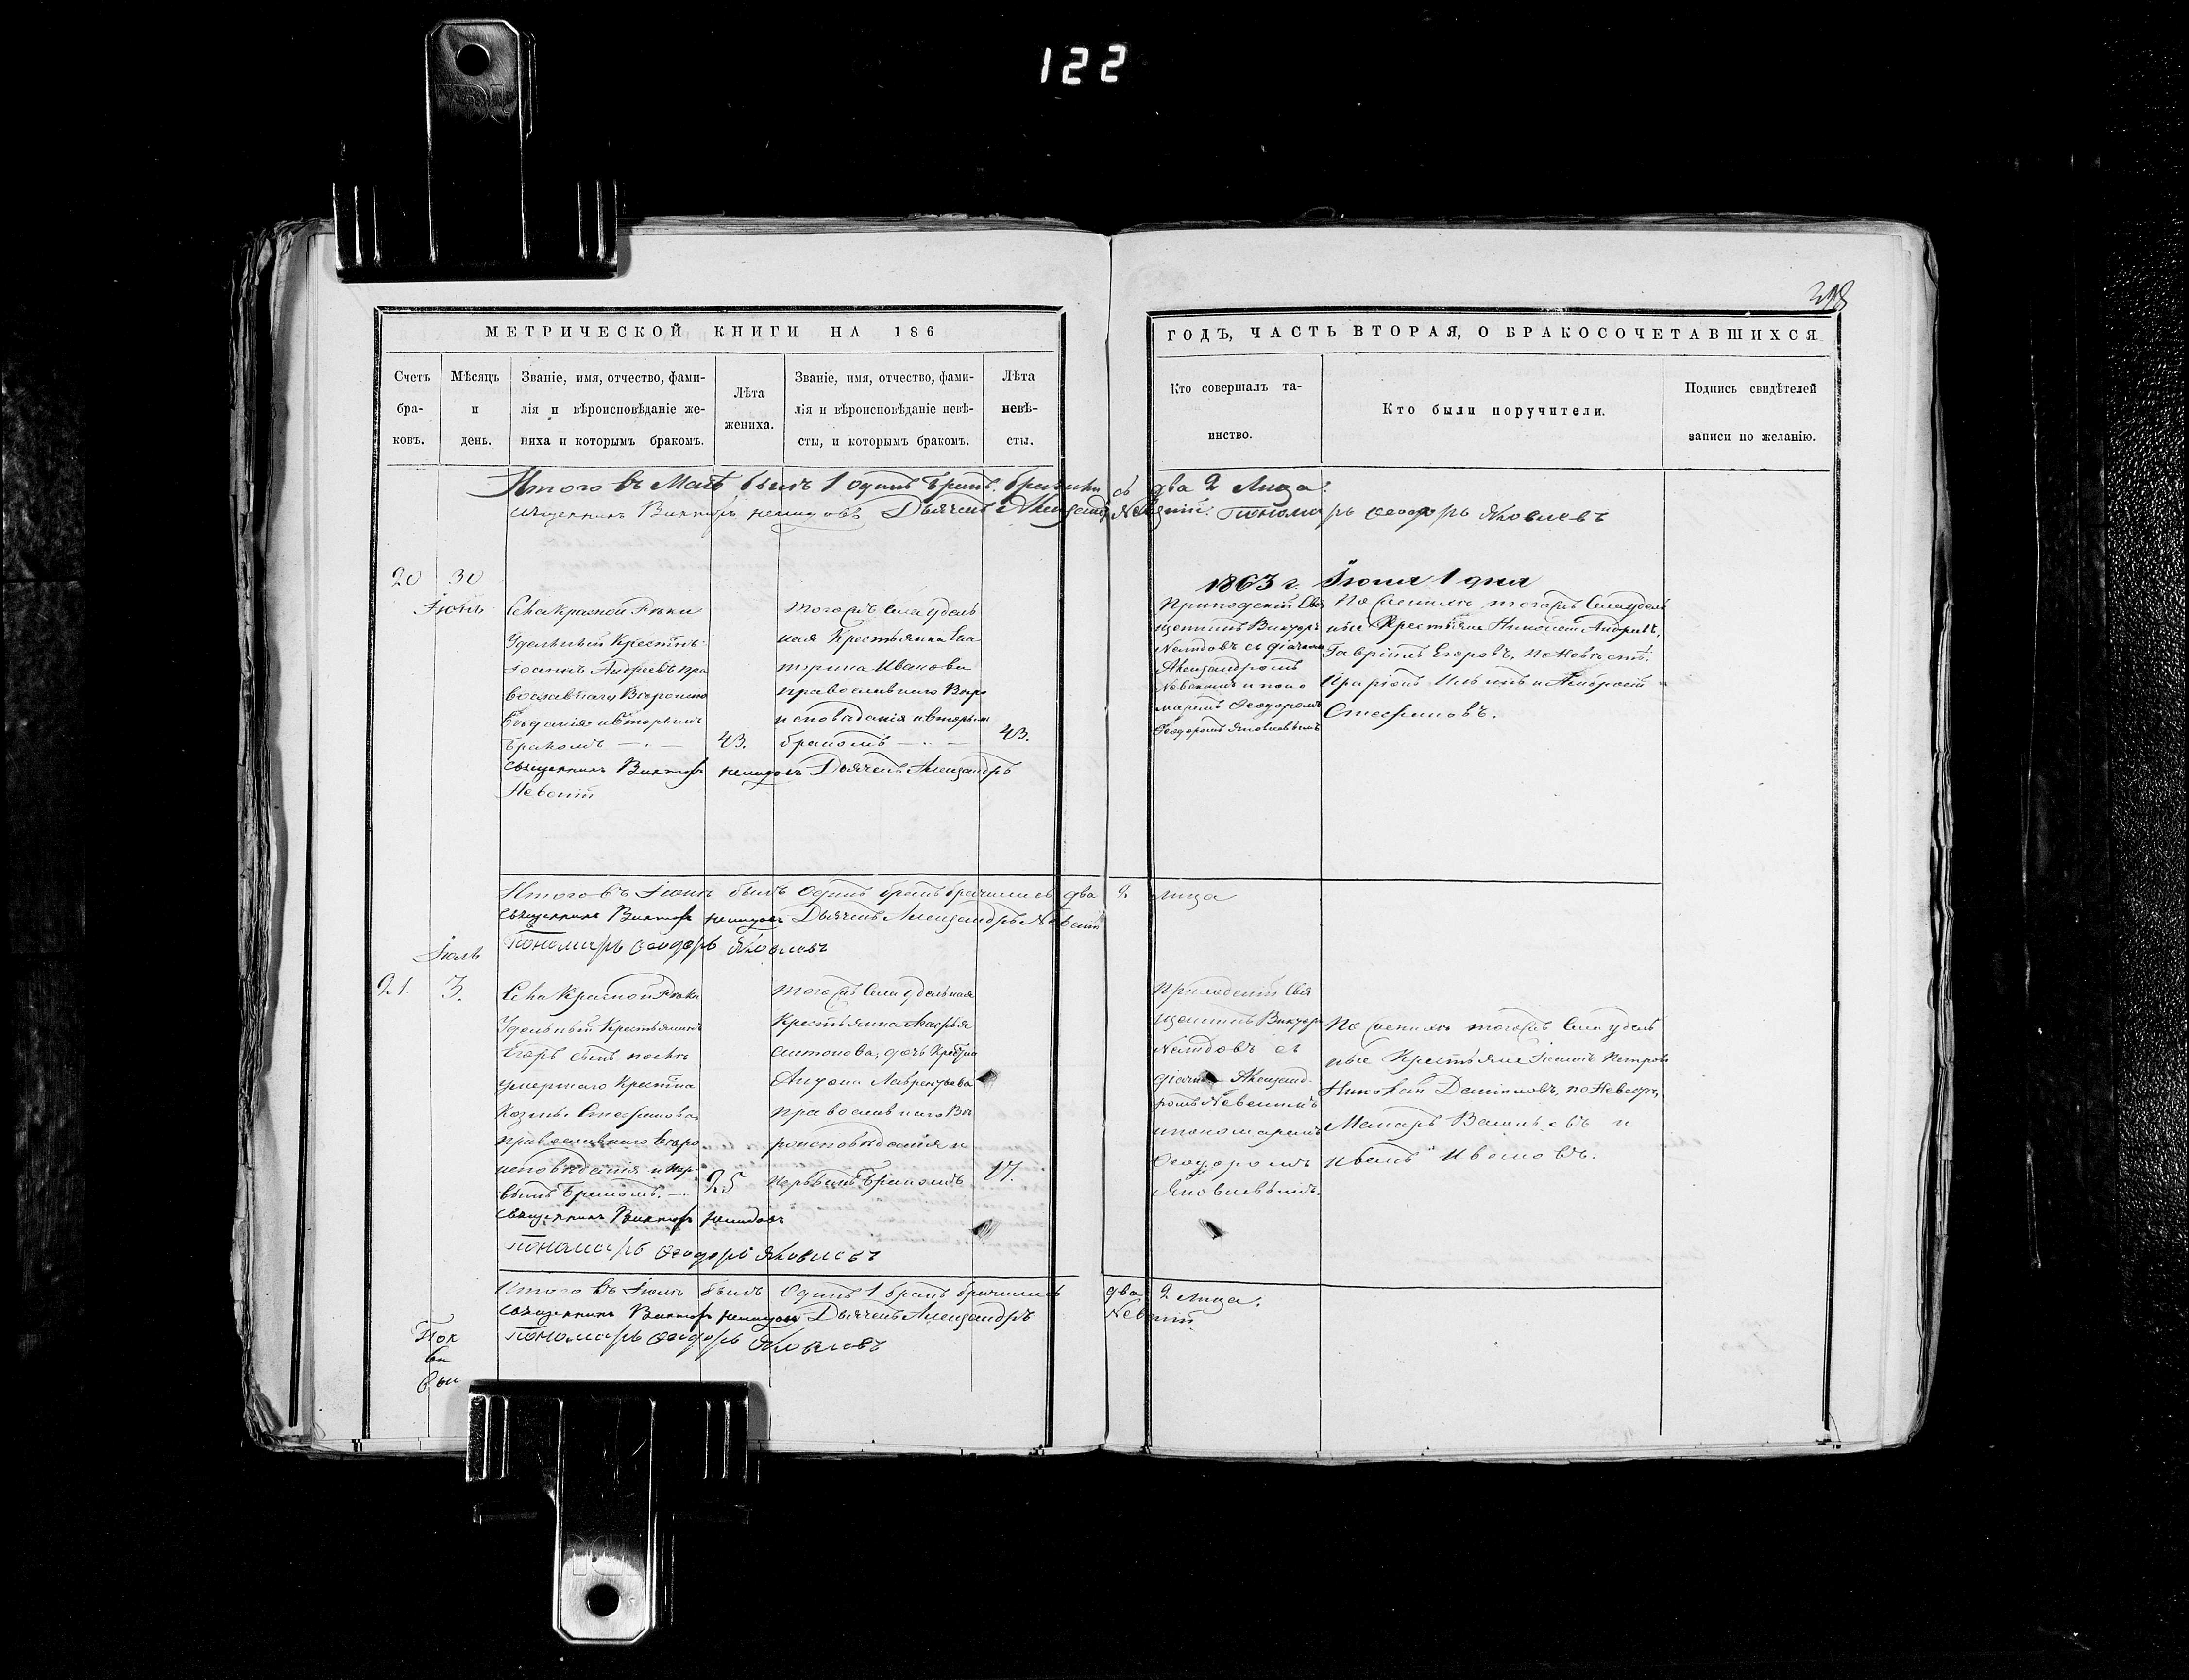 122
298
МЕТРИЧЕСКОЙ КНИГИ НА 186
ГОДЪ, ЧАСТЬ ВТОРАЯ, О БРАКОСОЧЕТАВШИХСЯ
Счетъ
бра-
ковъ.
Мѣсяцъ
и
день.
Званіе, имя, отчество, фами-
лія и вѣроисповѣданіе же-
ниха и которымъ бракомъ.
Лѣта
жениха.
Званіе, имя, отчество, фами-
лія и вѣроисповѣданіе невѣ-
сты, и которымъ бракомъ.
Лѣта
невѣ-
сты.
Кто совершалъ та-
инство.
Кто были поручители.
Подпись свидѣтелей
записи по желанію.
Итого въ Маѣ былъ 1 одинъ бракъ. два 2 Лица.
Священникъ Викторъ Дьячекъ Александръ Невскій. Пономарь Ѳеодоръ Яковлевъ
20 30
Іюнь
Села Красной Рѣки
Удельный Крестнъ
Іоаннъ Андреевъ пра
вославнаго Вѣроиспо
вѣданія и вторымъ
бракомъ
43.
тогожъ Села удель
ная Крестьянка Ека
терина Иванова
православнаго Вѣро
исповѣданія и вторым
бракомъ
43.
Священникъ Викторъ Дьячекъ Александръ
Невскій
1863 г. Іюня 1 дня
Приходскій Свя
щенникъ Викторъ
съ дьячкомъ
Александромъ
Невскимъ и поно
маремъ Ѳеодоромъ
Ѳеодоромъ Яковлевымъ
По Женихѣ тогожъ Села удель
ные Крестьяне Николай Андреевъ,
Гавріилъ Егоровъ, по Невѣстѣ.
Иларіонъ Ильинъ и
Стефановъ.
Итого въ Іюнѣ былъ Одинъ бракъ два 2 лица
Священникъ Викторъ Дьячекъ Александръ Невскій
Пономарь Ѳеодоръ Яковлевъ
Іюль
21. 3.
Села Красной Рѣки
Удельный Крестьянинъ
Егоръ сынъ послѣ
умершаго Крестна
Козмы Стефанова
православнаго Вѣро
исповѣданія и пер
вымъ бракомъ.
25
тогожъ Села удельная
Крестьянка
Антонова, дочь Крестна
Антона Лаврентьева
православнаго Вѣ
роисповѣданія и
первымъ бракомъ
17.
Священникъ Викторъ
Пономарь Ѳеодоръ Яковлевъ
Приходскій Свя
щенникъ Викторъ
съ
дьячкомъ Александ
ромъ Невскимъ
и пономаремъ
Ѳеодоромъ
Яковлевымъ.
По Женихѣ тогожъ Села удель
ные Крестьяне Іоаннъ Петровъ
Николай Даниловъ, по Невѣстѣ,
и
Иванъ Ивановъ.
Итого въ Іюлѣ былъ Одинъ 1 бракъ два 2 лица.
Священникъ Викторъ Дьячекъ Александръ Невскій
Пономарь Ѳеодоръ Яковлевъ